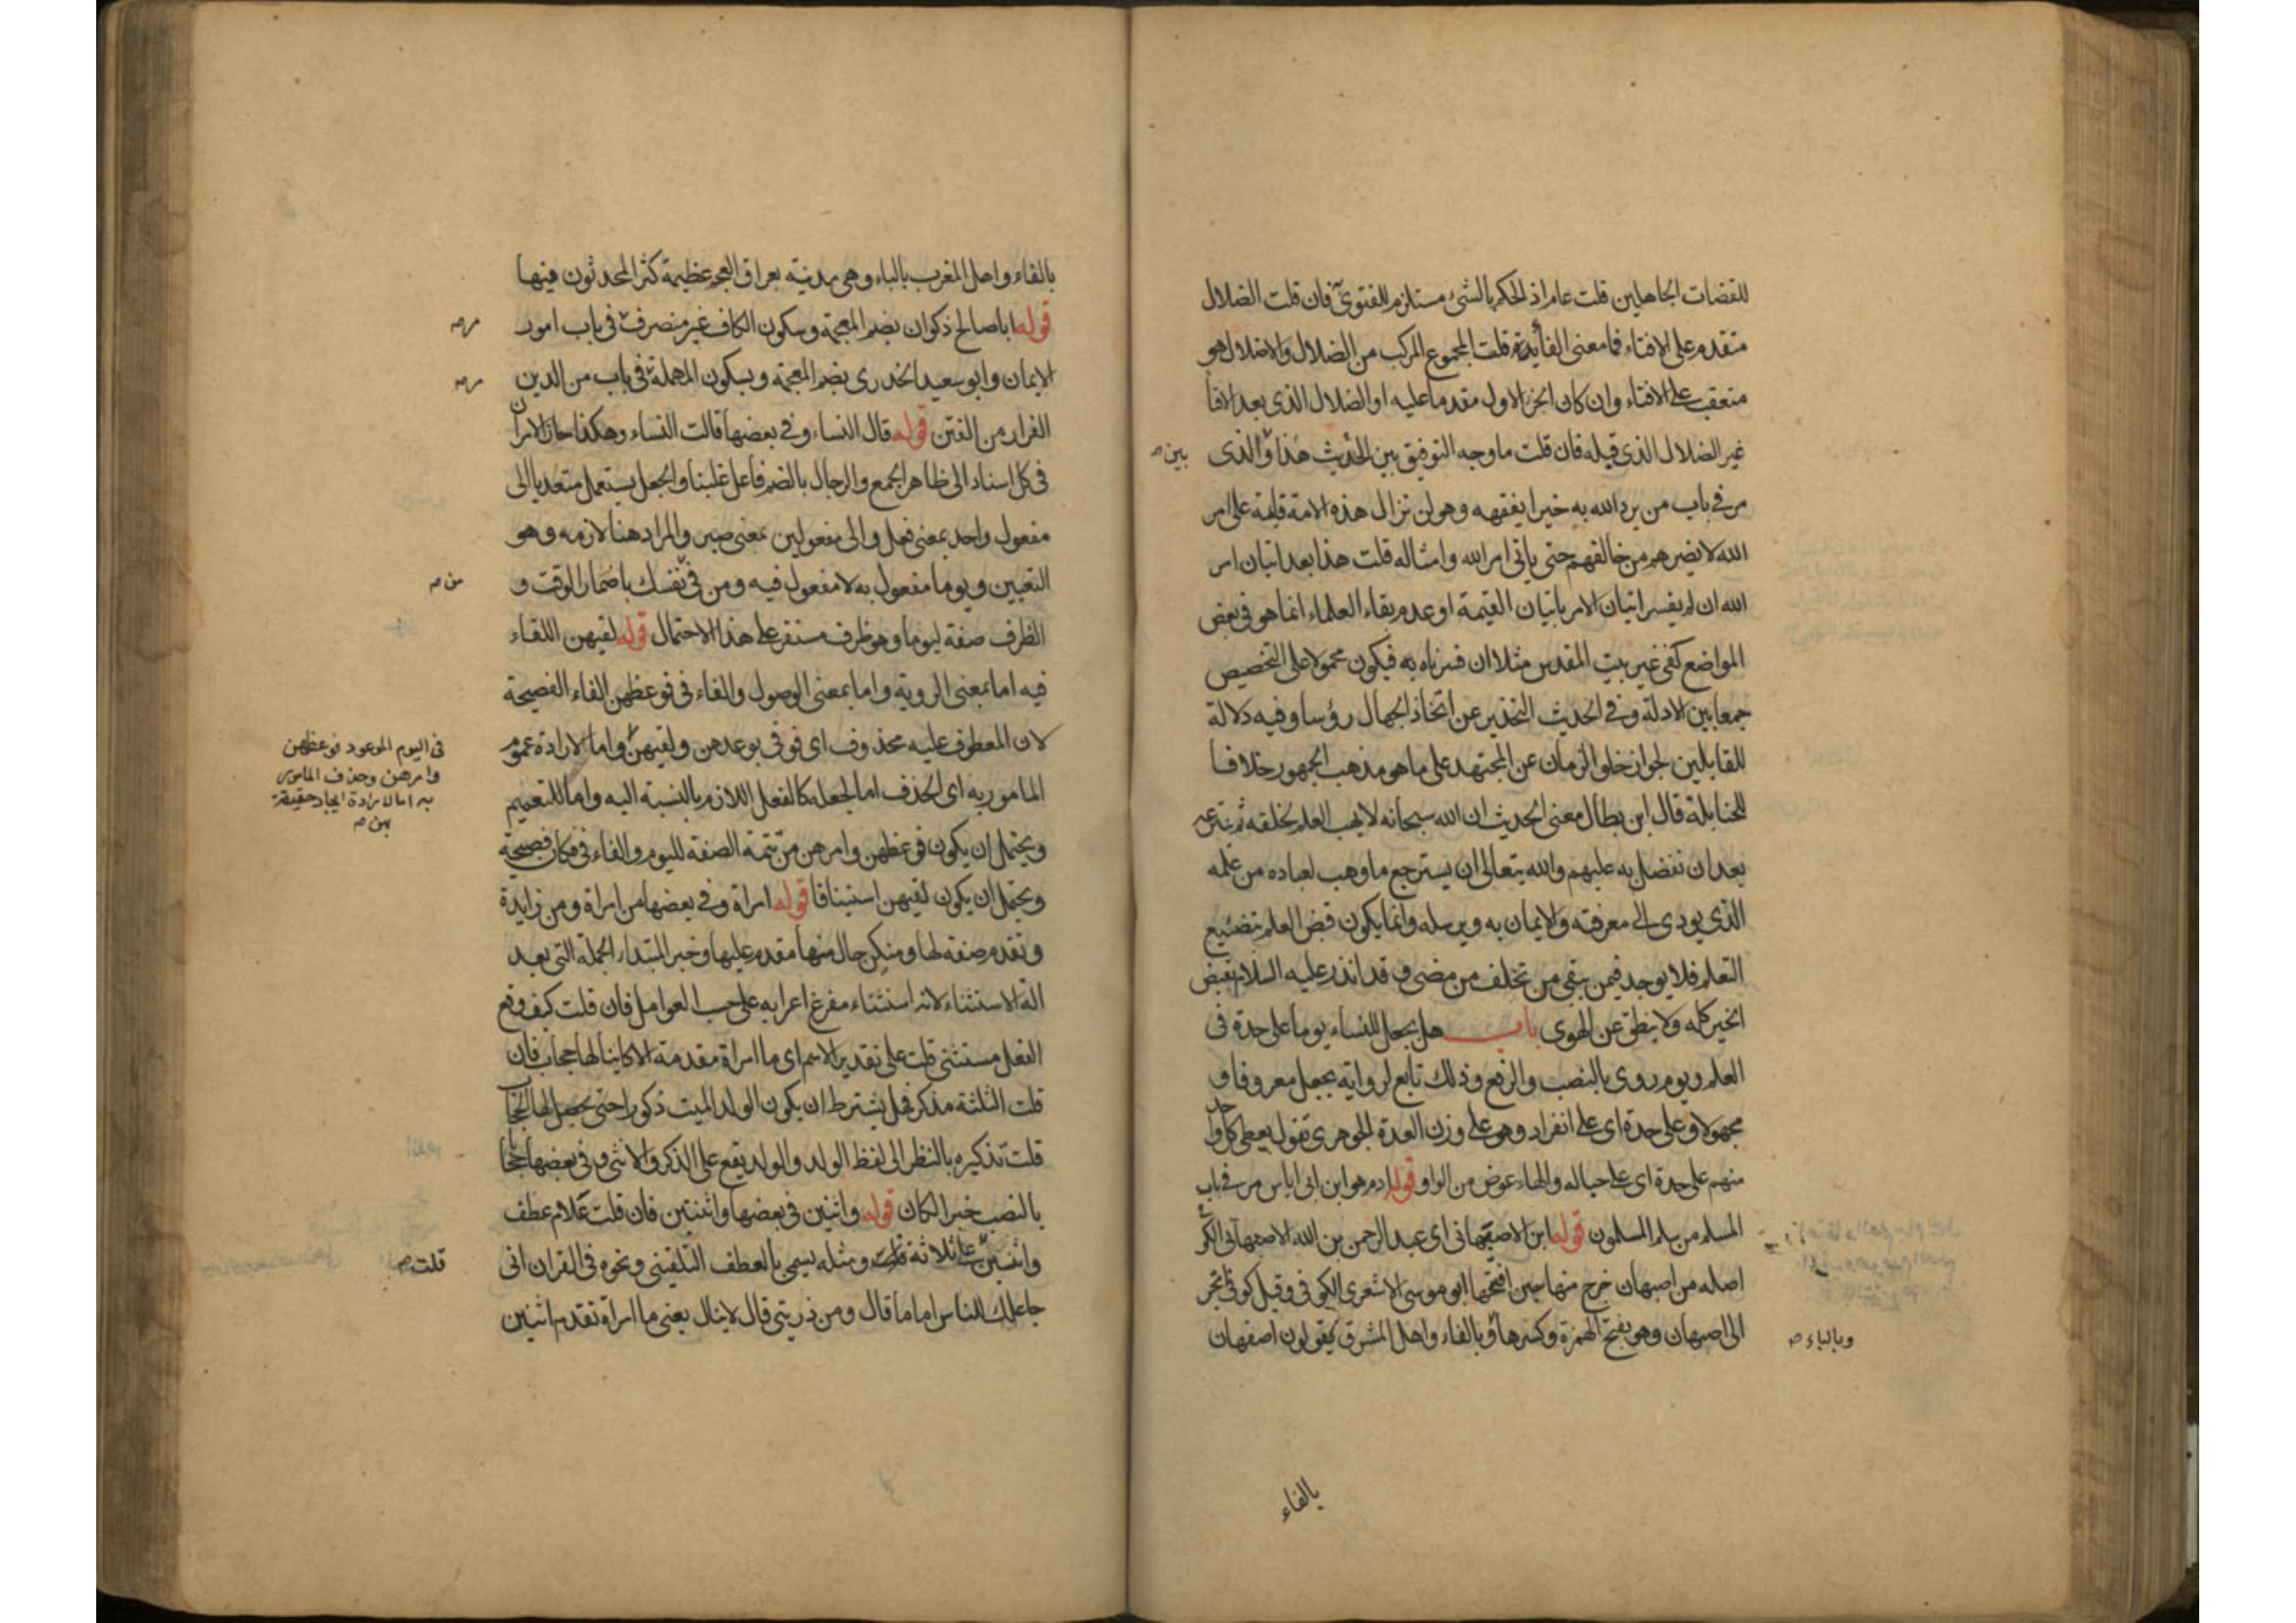 للقضات الجاهلين قلت عام اذ الحكم بالشئ مستلزم للفتوى فان قلت الضلال
متقدم على الافتاء فما معنى الفا قلت المجموع المركب من الضلال والاضلال هو
متعقب على الافتاء وان كان الجزء الاول مقدما عليه او الضلال الذى بعد الافتا
غير الضلال الذى قبله فان قلت ما وجه التوفيق بين الحديث هذا والذى
بين صح
مر فى باب من يرد الله به خيرا يفقهه وهو لن تزال هذه الامة قايمة على امر
الله لا يضرهم من خالفهم حتى ياتى امر الله وامثاله قلت هذا بعد اتيان امر
الله ان لم يفسر اتيان الامر باتيان القيمة او عدم بقاء العلماء انما هو فى بعض
المواضع كفى غير بيت المقدس مثلا ان فسرناه به فيكون محمولا على التخصيص
جمعا بين الادلة وفى الحديث التحذير عن اتخاذ الجهال رؤسا وفيه دلالة
للقايلين لجواز خلو الزمان عن المجتهد على ما هو مذهب الجمهور خلافا
للحنابلة قال ابن بطال معنى الحديث ان الله سبحانه لا يهب العلم لخلقه ثم ينتزعه
بعد ان تفضل به عليهم والله يتعالى ان يسترجع ما وهب لعباده من علمه
الذى يودى الى معرفته والايمان به وبرسله وانما يكون قبض العلم بتضييع
التعلم فلا يوجد فيمن يبقى من تخلف من مضى وقد انذر عليه السلام بقبض
الخير كله ولا ينطق عن الهوى باب هل يجعل للنساء يوما على حدة فى
العلم ويوم روى بالنصب والرفع وذلك تابع لرواية يجعل معروفا و
مجهولا وعلى حدة اى على انفراد وهو على وزن العدة الجوهرى تقول يعطى كل واحد
منهم على حدة اى على حياله والهاء عوض من الواو قوله ادم هو ابن ابى اياس مر فى باب
المسلم من سلم المسلمون قوله ابن الاصبهانى اى عبد الرحمن بن الله الاصبهانى
اصله من اصبهان خرج منها حين افتتحها ابو موسى الاشعرى الكوفى وقيل كوفى تجر
الى اصبهان وهو بفتح الهمزة وكسرها وبالفاء واهل المشرق يقولون اصفهان
وبالباء صح
بالفاء
بالفاء واهل المغرب بالباء وهى مدينة بعراق العجم عظيمة كثر المحدثون فيها
قوله ابا صالح ذكوان بضم المعجمة وسكون الكاف غير منصرف فى باب امور
مر صح
الايمان وابو سعيد الخدرى بضم المعجمة وبسكون المهملة فى باب من الدين
مر صح
الفرار من الفتن قوله قال النساء وفى بعضها قالت النساء وهكذا جاز الامران
فى كل اسناد الى ظاهر الجمع والرجال بالضم فاعل غلبنا والجعل يستعمل متعديا الى
مفعول واحد بمعنى فعل والى مفعولين بمعنى صير والمراد هنا لازمه وهو
التعيين ويوما مفعول به لا مفعول فيه ومن فى نفسك باضمار الوقت و
من صح
الظرف صفة ليوما وهو ظرف مستقر على هذا الاحتمال قوله لقيهن اللقاء
فيه اما بمعنى الروية واما بمعنى الوصول والفاء فى فوعظهن الفاء الفصيحة
لان المعطوف عليه محذوف اى فوفى بوعدهن ولقيهن واما لارادة عموم
فى اليوم الموعود فوعظهن
وامرهن وحذف المامور
به اما لارادة ايجاد حقيقة
المامور به اى الحذف اما لجعله كالفعل اللازم بالنسبة اليه واما للتعميم
ويحتمل ان يكون فوعظهن وامرهن من تتمة الصفة لليوم والفاء فى فكان فصيحة
ويحتمل ان يكون لقيهن استينافا قوله امراة وفى بعضها من امراة ومن زايدة
وتقدم صفة لها ومنكن حال منها مقدم عليها وخبر المبتدا الجملة التى بعد
الة الاستثناء لانه استثناء مفرغ اعرابه على حسب العوامل فان قلت كيف وقع
الفعل مستثنى قلت على تقدير الاسم اى ما امراة مقدمة الا كاينا لها حجاب فان
قلت الثلثة مذكر فهل يشترط ان يكون الولد الميت ذكورا حتى يحصل لها الحجاب
قلت تذكيره بالنظر الى لفظ الولد والولد يقع على الذكر والانثى وفى بعضها حجابا
بالنصب خبرا لكان قوله واثنين فى بعضها واثنتين فان قلت علام عطف
واثنين على ثلاثة ومثله يسمى بالعطف التلقينى ونحوه فى القران انى
قلت صح
جاعلك للناس اماما قال ومن ذريتى قال لا ينال يعنى ما امراة تقدم اثنين